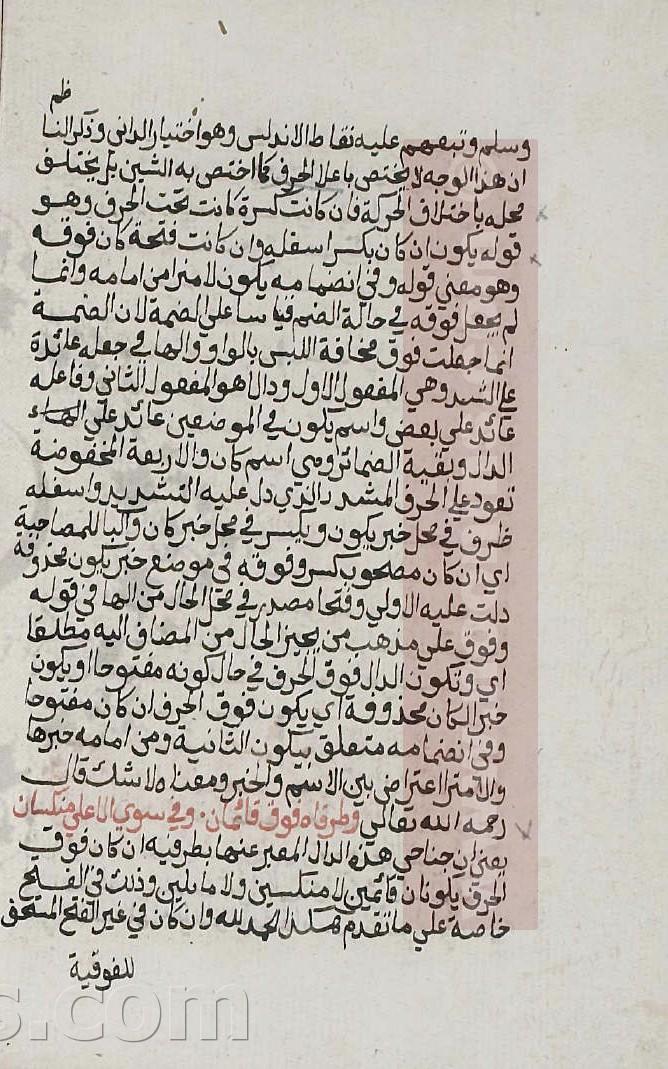 ظم
وسلم وتبعهم عليه نقاط الاندلس وهو اختيار الداني وذكر النا
ان هذا الوجه لا يختص باعلا الحرف كما اختص به الشين بل يختلف
محله باختلاف الحركة فان كانت كسرة كانت تحت الحرف وهو
قوله يكون ان كان بكسر اسفله وان كانت فتحة كان فوقه
وهو معني قوله وفي انضمامه يكون لا مترا من امامه وانما
لم يجعل فوقه في حالة الضم قياسا علي الضمة لان الضمة
انما جعلت فوق مخافة اللبس بالواو والها في جعله عائدة
علي الشد وهي المفعول الاول ودالا هو المفعول الثاني وفاعله
عائد علي بعض واسم يكون في الموضعين عائد علي الهاء
الدال وبقية الضمائر وهي اسم كان والاربعة المخفوضة
تعود علي الحرف المشدد الذي دل عليه التشديد واسفله
ظرف في محل خبر يكون وبكسر في محل خبر كان والبا للمصاحبة
اي ان كان مصحوب كسر وفوقه في موضع خبر يكون محذوفة
دلت عليه الاولي وفتحا مصدر في محل الحال من الها في قوله
وفوق علي مذهب من يجيز الحال من المضاف اليه مطلقا
اي وتكون الدال فوق الحرف في حال كونه مفتوحا او يكون
خبر الكان محذوفة اي يكون فوق الحرف ان كان مفتوحا
وفي انضمامه متعلق بيكون الثانية ومن امامه خبرها
والامترا اعتراض بين الاسم والخبر ومعناه لا شك قال
رحمه الله تعالي وطرفاه فوق قائمان وفي سوي الاعلي منكسان
يعني ان جناحي هذه الدال المعبر عنها بطرفيه ان كان فوق
الحرف يكونان قائمين لا منكسين ولا مايلين وذلك في الفتح
خاصة علي ما تقدم هكذا الحمد لله وان كان في غير الفتح المستحق
للفوقية
s.com